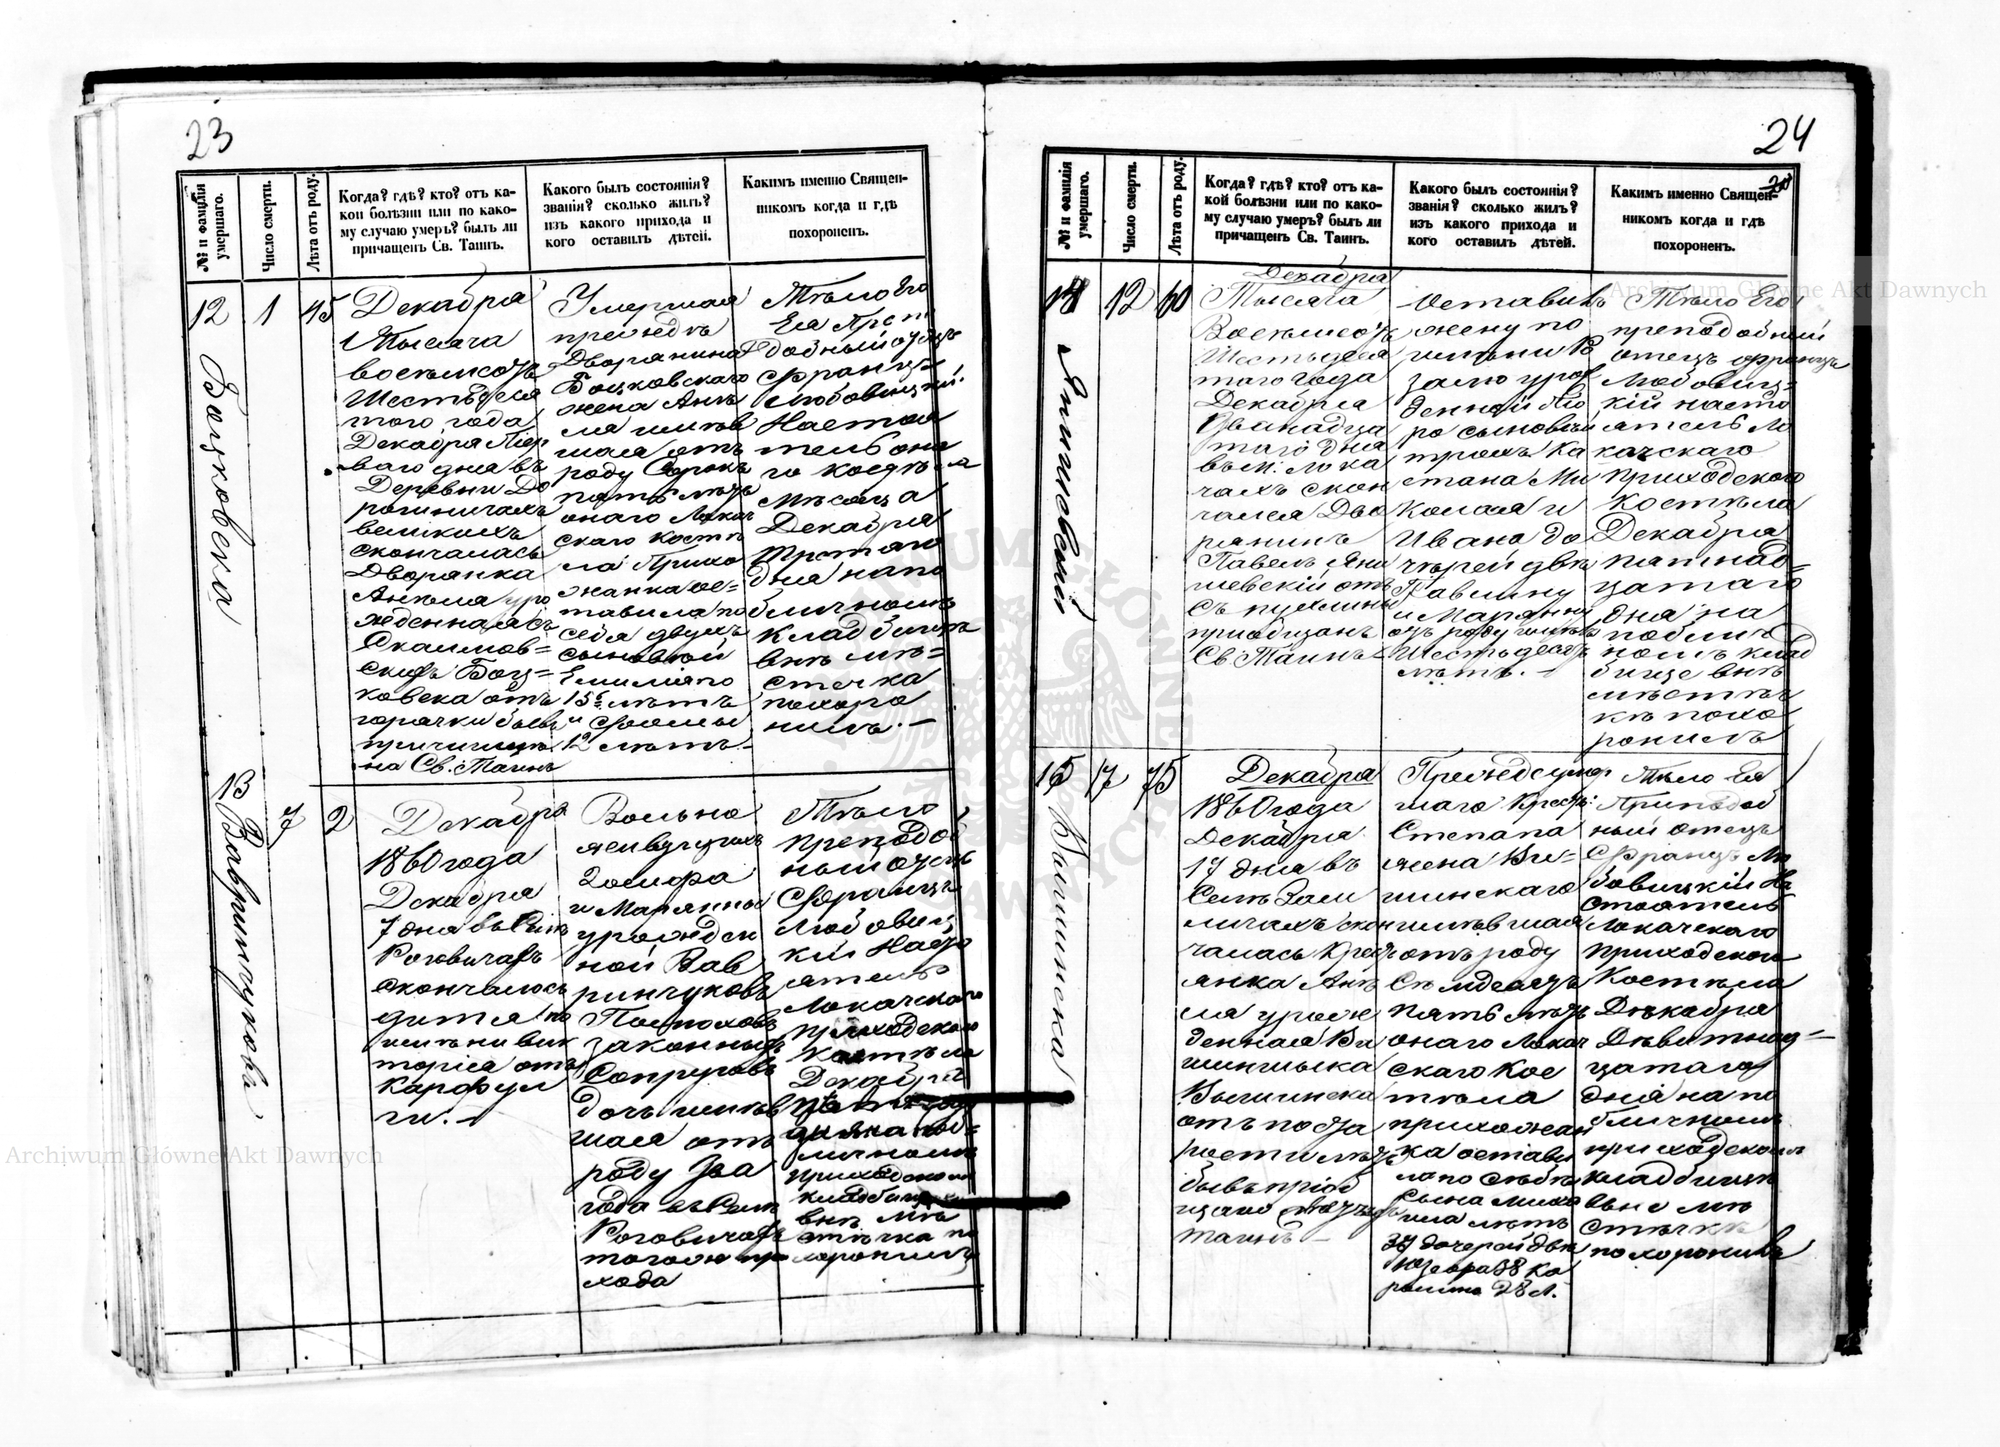 23
№ и фамилія умершаго.
Число смерти.
Лѣта отъ роду.
Когда? гдѣ? кто? отъ ка-
кой болѣзни или по како-
му случаю умеръ? былъ ли
причащенъ Св. Таинъ.
Какого былъ состоянія?
званія? сколько жилъ?
изъ какого прихода и
кого оставилъ дѣтей.
Какимъ именно Священ-
никомъ когда и гдѣ
похороненъ.
12
Боцковска
1
45
Декабря
Тысяча
восемьсотъ
Шестьдеся
того года
Декабря Пер
ваго дня въ
Деревни До
рогиничахъ
великихъ
скончалась
Дворянка
Ангеля уро
жденная съ
Боц=
ковска отъ
горячки бывъ
на Св. Таинъ
Умершая
прежде
Дворянина
Боцковскаго
жена Анге
ля имѣв
шая отъ
роду Сорокъ
пять лѣтъ
онаго Локач
скаго костѣ
ла Прихо
жанка ос=
тавила по
себя двухъ
сыновей
15 лѣтъ
12 лѣтъ
Тѣло Его
Ея Преп
добный отецъ
Францъ
Любовицкій
Настоя
тель она
го костѣла
Мѣсяца
Декабря
Третяго
дня на по
бличномъ
кладбищѣ
внѣ мѣ=
стечка
похоро
нилъ. —
13
Вавринчукова
7
2
Декабря
1860 года
Декабря
7 дня въ Селѣ
Роговичахъ
скончалось
дитя по
имени Вик
торія отъ
Вольно
Іосифа
и Марянны
урожден
ной Вав
ринчуковъ
законныхъ
Супруговъ
дочь имѣв
шая отъ
роду два
года въ Селѣ
Роговичахъ
тогоже при
хода
Тѣло
преподоб
ный отецъ
Францъ
Любовиц
кій Насто
ятель
Локачскаго
приходскаго
костѣла
Декабря
дня на поб=
личномъ
приходскомъ
кладбищѣ
внѣ мѣ
стечка по
хоронилъ
24
№ и фамилія умершаго.
Число смерти.
Лѣта отъ роду.
Когда? гдѣ? кто? отъ ка-
кой болѣзни или по како-
му случаю умеръ? былъ ли
причащенъ Св. Таинъ.
Какого былъ состоянія?
званія? сколько жилъ?
изъ какого прихода и
кого оставилъ дѣтей.
Какимъ именно Священ-
никомъ когда и гдѣ
похороненъ.
14
Янишевскій
12
60
Декабря
Тысяча
Восемьсотъ
Шестьдеся
таго года
Декабря
Двенадца
таго дня
въ м. Лока
чахъ скон
чался Дво
рянинъ
Павелъ Яни
шевскій отъ
пухлины
Св. Таинъ
оставивъ
жену по
имени Ро
залю урож
денной
сыновей
трохъ Ка
етана Ми
колая и
Ивана до
черей двѣ
Павлину
и Марянну
отъ роду имѣвъ
Шестьдесятъ
лѣтъ. —
Тѣло Его
преподобный
отецъ Францъ
Любовиц=
кій насто
ятель Ло
качскаго
приходскаго
костѣла
Декабря
пятнад=
цатаго
дня на
поблич
номъ клад
бище внѣ
мѣстеч
кѣ похо
ронилъ
15
Вышинска
17
75
Декабря
1860 года
Декабря
17 дня въ
Селѣ Зам
личахъ скон
чалась Крест
янка Анге
ля урож
денная
Вышинска
отъ поста
рости лѣтъ
бывъ пріоб
щана
Таинъ —
Прежде умер
шаго Крест:
Степана
жена Ви=
шинскаго
имѣвшая
отъ роду
Семдесятъ
пять лѣтъ
онаго Локач
скаго кос
тѣла
прихожан
ка остави
ла по себѣ
сына Миха
ила лѣтъ
37 дочерей двѣ
Юзефа 38 Ка
ролина 28 л.
Тѣло Ея
Приподоб
ный отецъ
Францъ Лю
бовицкій На
стоятель
Локачскаго
приходскаго
Костѣла
Декабря
Девятнад=
цатаго
дня на по
бличномъ
приходскомъ
кладбищѣ
внѣ мѣ
стечкѣ
похоронилъ
Archiwum Główne Akt Dawnych
Archiwum Główne Akt Dawnych